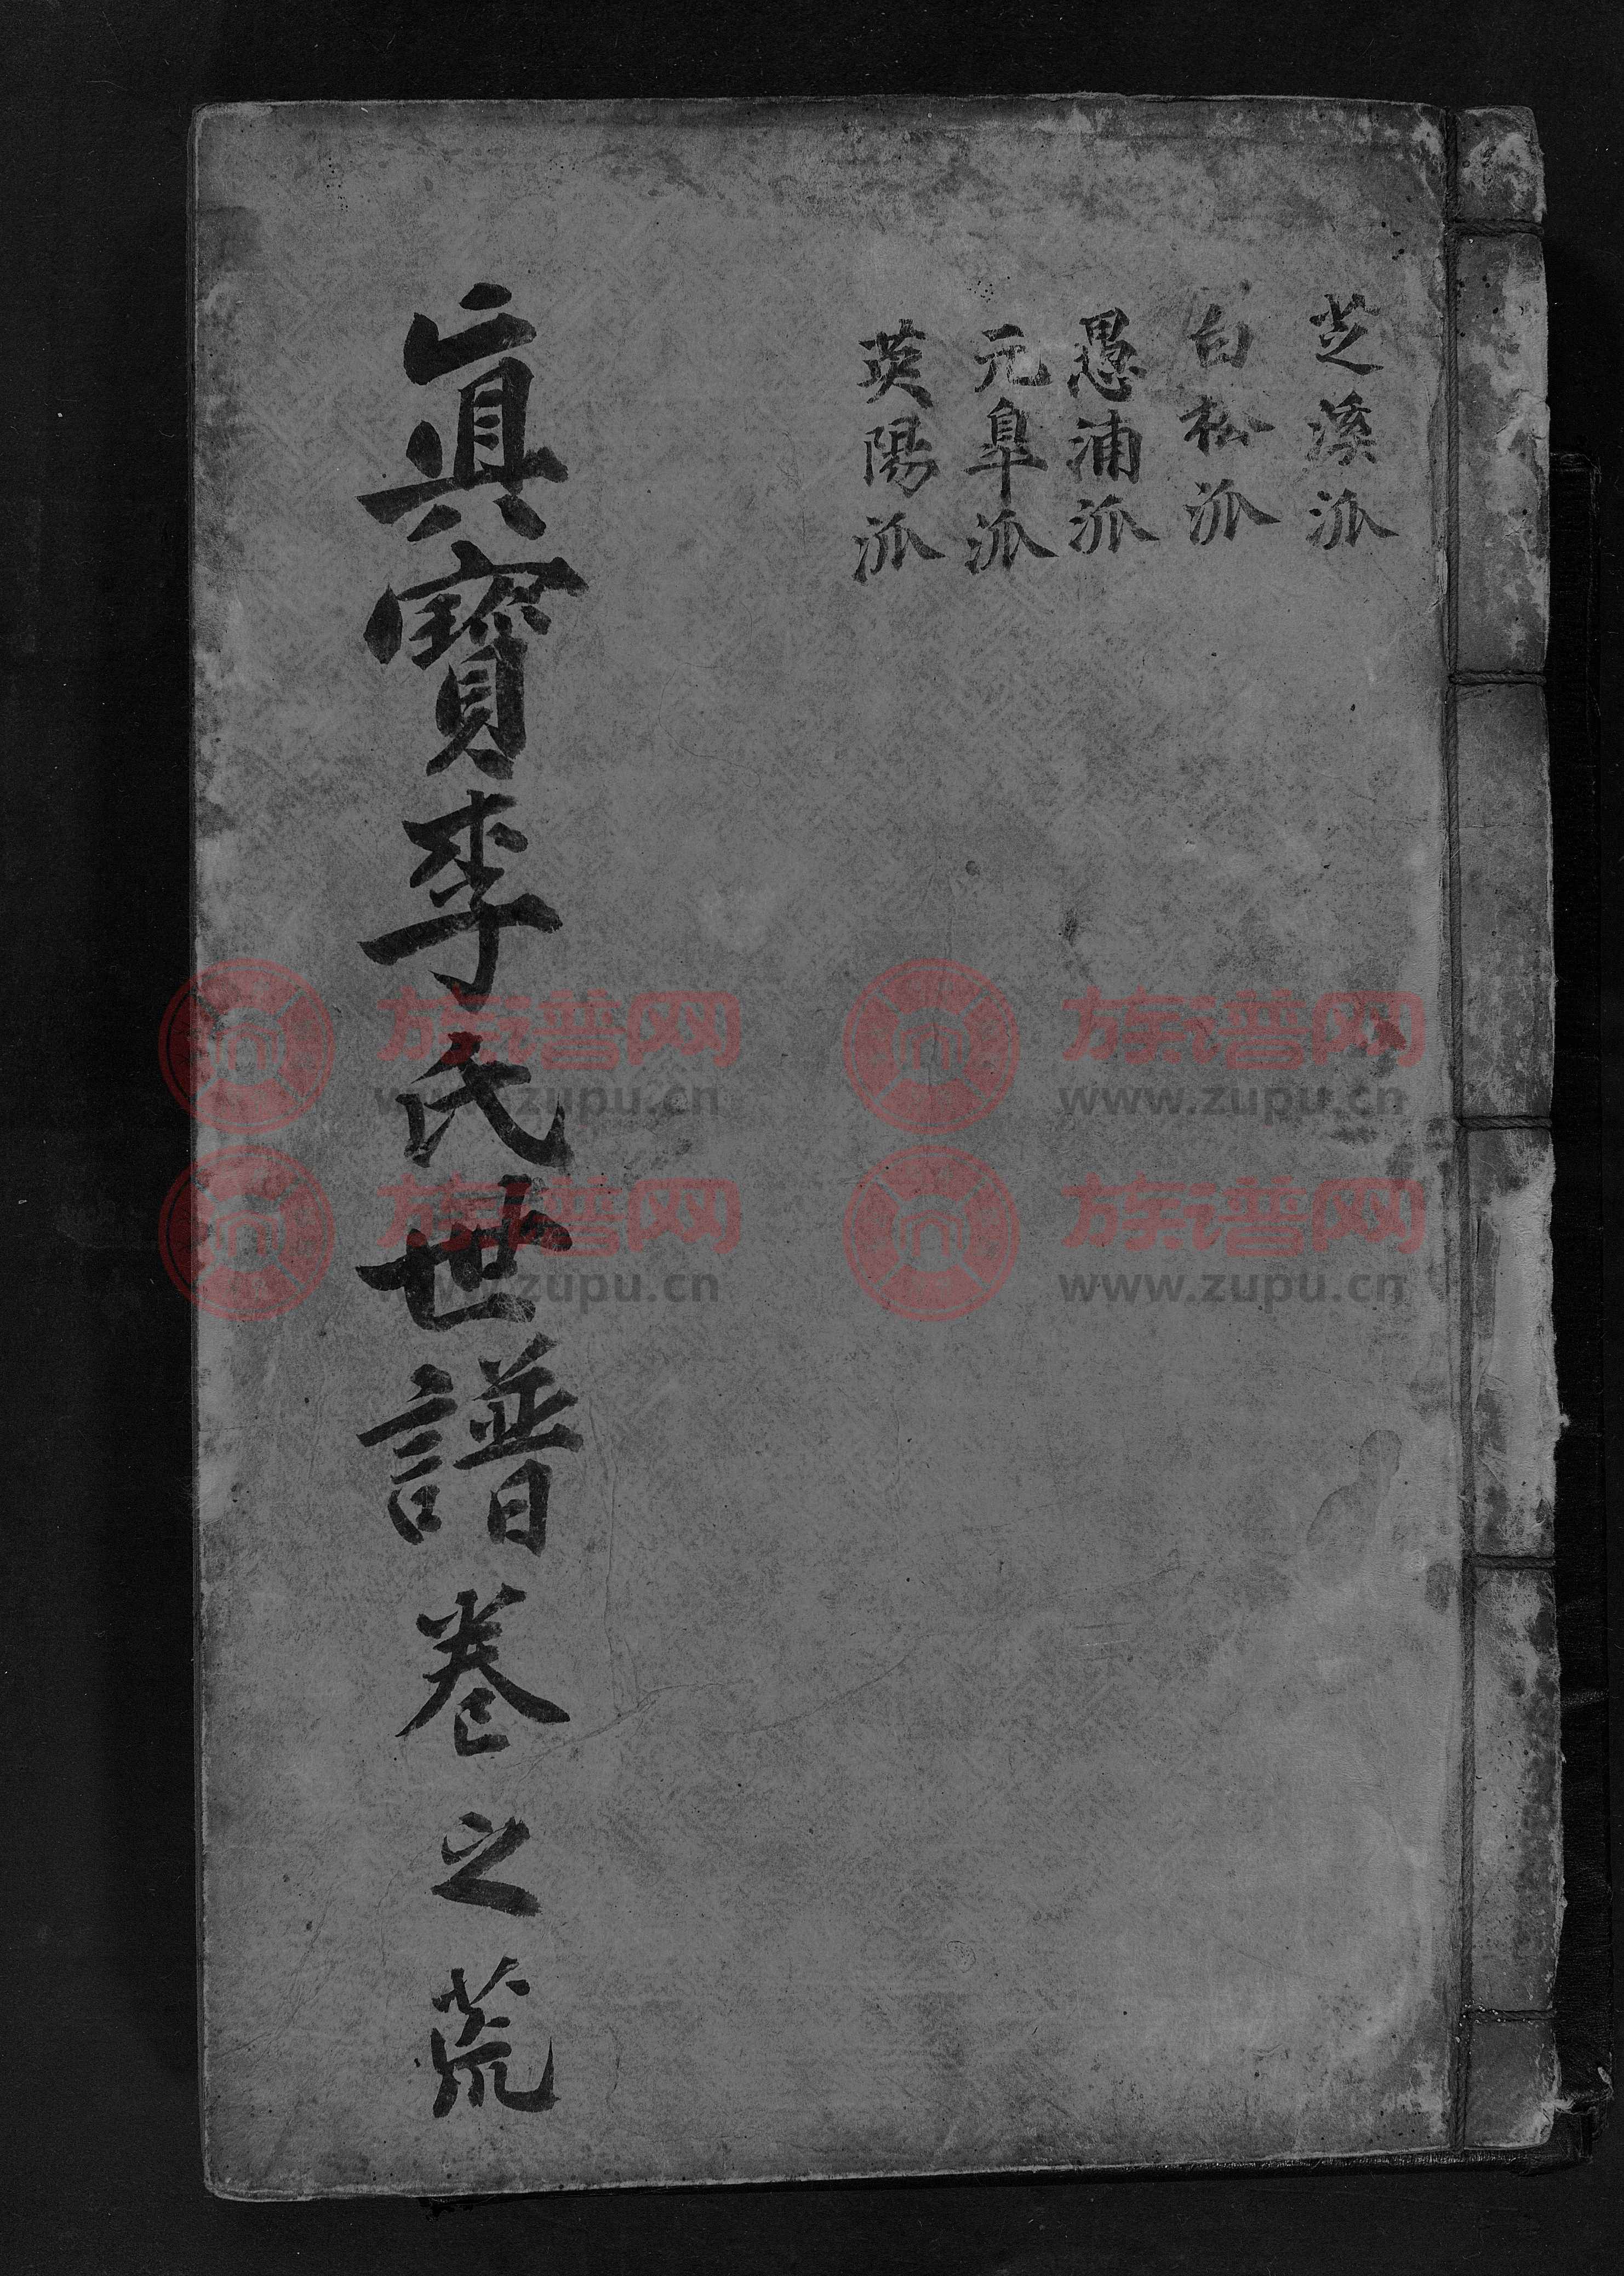 芝溪派
白松派
愚浦派
元皐派
英陽派
眞寶李氏世譜卷之荒
族谱网
www.zupu.cn
族谱网
www.zupu.cn
族谱网
www.zupu.cn
族谱网
www.zupu.cn